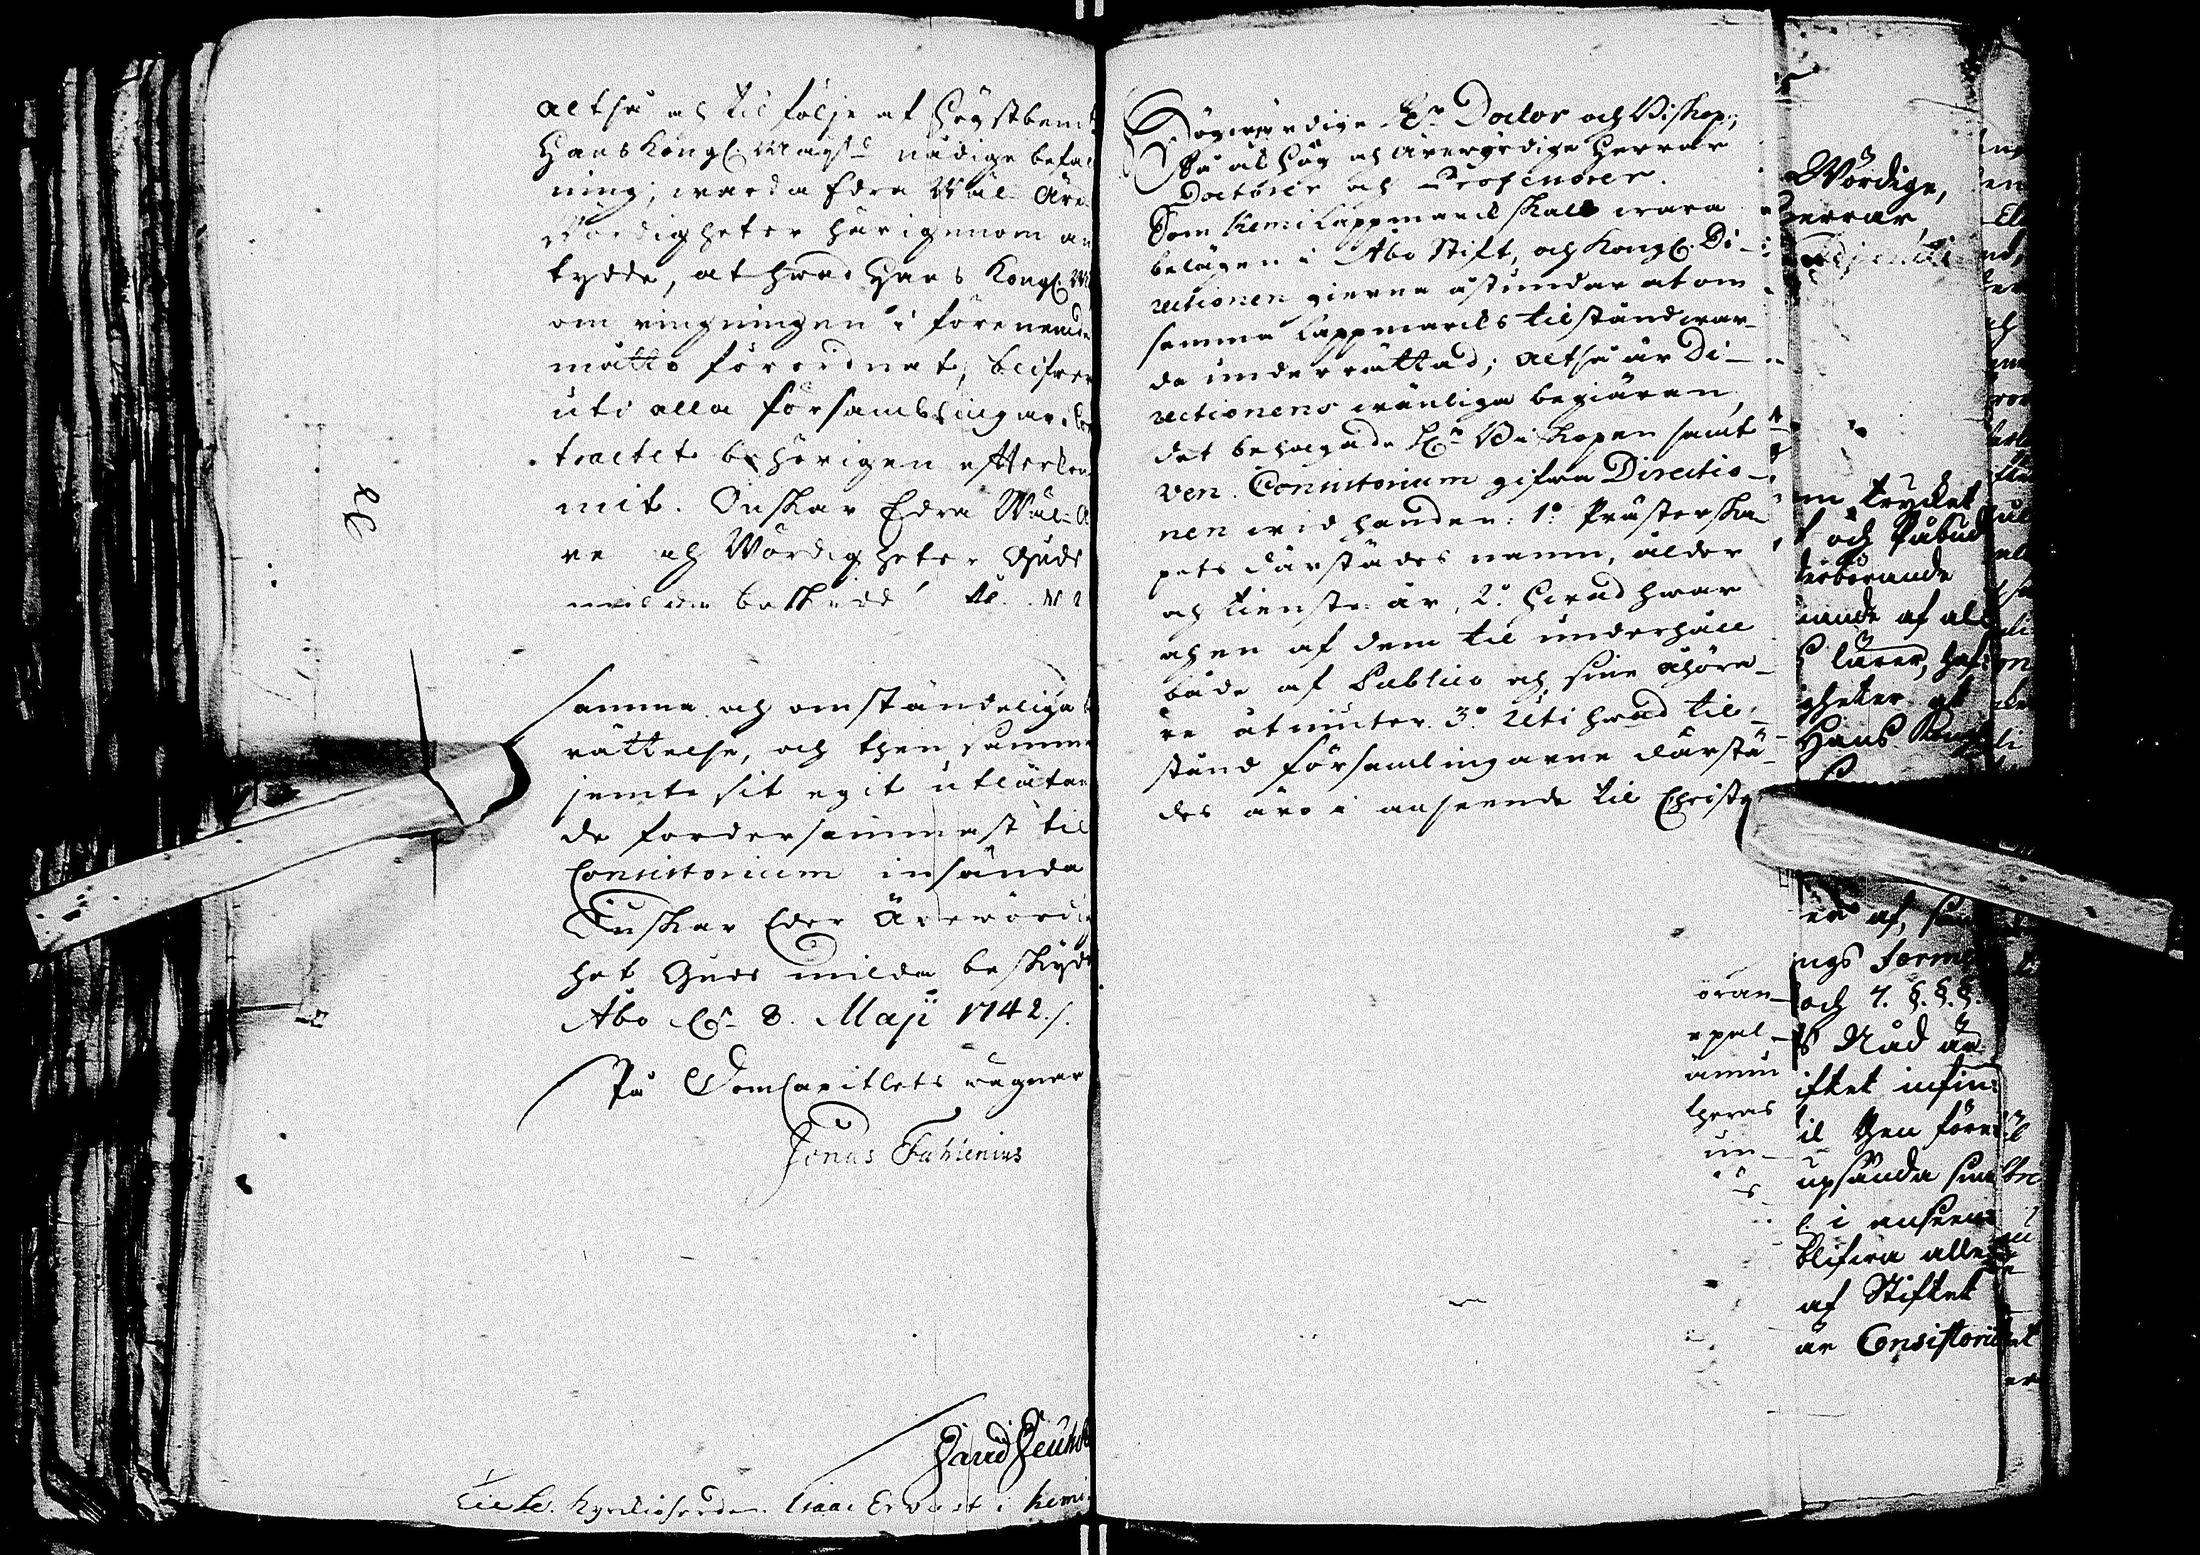 altså och til följe af Högstbem:te
Hans Kongl. Maij:ts nådige befal
ning; warda Edra Wäl Äre
Wördigheter härigenom an
tydde, at hwad Hans Kongl. M
om ringningen i förenemde
måtto förordnat, blifwer
uti alla församblingar i Con
tractet behörigen efterkom
mit. Önskar Edra Wäl Ä
re och Wördigheter Guds
milda beskydd
samma och omständeliga
rättelse, och then samma
jemte sit egit utlåtan
de fordersammast til
Consistorium insända
Önskar Eder Ärewördig
het Guds milda beskydd
Åbo d. 8. Maji 1742./.
På DomCapitlets wägnar
Jonas Fahlenius
David Deutsch
Til Kyrckioherden Isaac Ervast i Kemi
Högwyrdige H:r Doctor och Biskop,
Så ock Hög och Ärewyrdige Herrar
Doctorer och Professorer.
Som Kemi Lappmarck skall wara
belägen i Åbo Stift, och Kongl. Di-
rectionen gierna åstundar at om
samma Lappmarcks tilstånd war-
da underrättad; altså är Di-
rectionens wänliga begiäran,
det behagade H:r Biskopen samt
Ven. Consistorium gifwa Directio-
nen wid handen: 1:o Prästerska-
pets därstädes namn, ålder
och tienste år, 2:o Hwad hwar
och en af dem til underhåll
både af Publico och sine åhöra-
re åtniuter. 3:o Uti hwad til-
stånd församlingarne därstä-
des äro i anseende til Christ
Wördige,
Herrar,
trycket
och Påbud
hörande
af all
lärer, haf
igheter at
Hans Kongl
er af, som
ngs form
och 7. §.§.§.
s Nåd är
iftet infin
il then före
upsända sin
i anseen
blifwa alle
af Stiftet
är Consistoriet